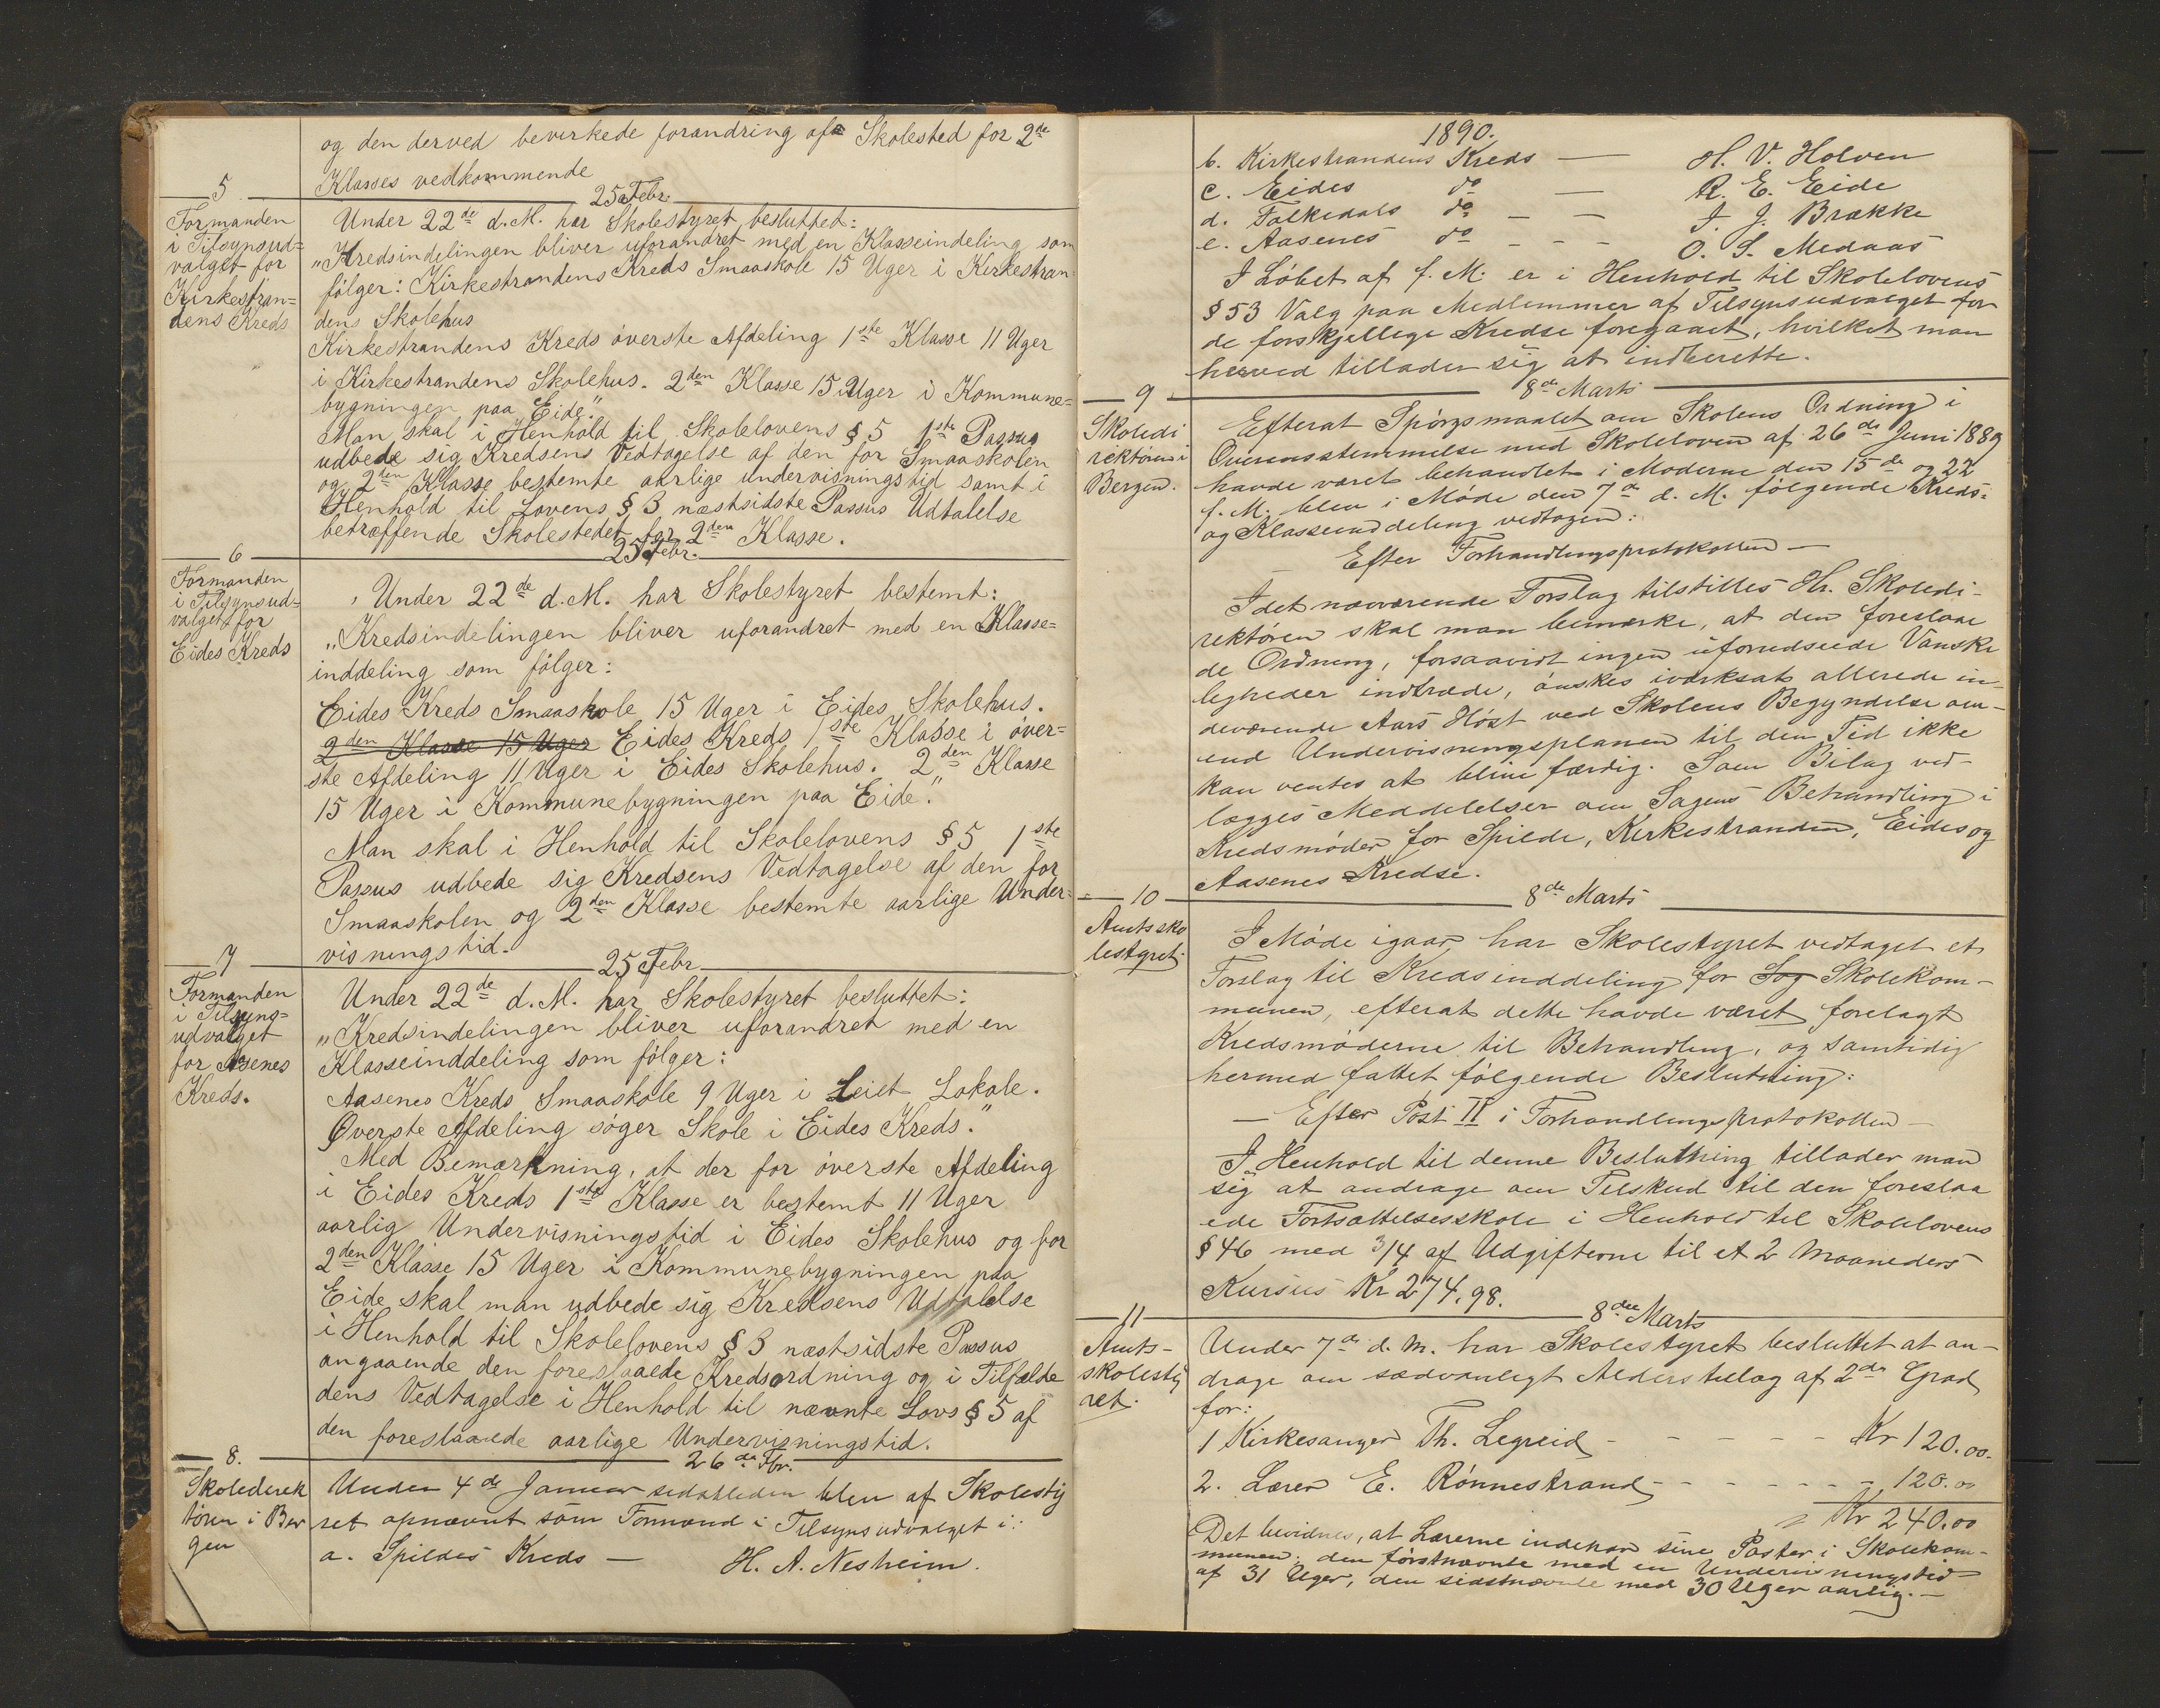 og den derved bevirkede forandring af Skolested for 2de
Klasses vedkommende
5
25 Febr.
Formanden
i Tilsynsud=
valget for
Kirkestran=
dens Kreds
Under 22de d.M. har Skolestyret besluttet:
"Kredsindelingen bliver uforandret med en Klasseindeling som
følger: Kirkestrandens Kreds Smaaskole 15 Uger i Kirkestran=
dens Skolehus
Kirkestrandens Kreds øverste Afdeling 1ste Klasse 11 Uger
i Kirkestrandens Skolehus. 2den Klasse 15 Uger i Kommune=
bygningen paa Eide."
Man skal i Henhold til Skolelovens § 5 1ste Passus
udbede sig Kredsens Vedtagelse af den for Smaaskolen
og 2den Klasse bestemte aarlige undervisningstid samt i
Henhold til Lovens § 3 næstsidste Passus Udtalelse
betræffende Skolestedet for 2den Klasse.
6
25 Febr.
Formanden
i Tilsynsud=
valget for
Eides Kreds
Under 22de d.M. har Skolestyret bestemt:
"Kredsindelingen bliver uforandret med en Klasse=
inddeling som følger:
Eides Kreds Smaaskole 15 Uger i Eides Skolehus.
2den Klasse 15 Uger Eides Kreds 1ste Klasse i øver=
ste Afdeling 11 Uger i Eides Skolehus. 2den Klasse
15 Uger i Kommunebygningen paa Eide."
Man skal i Henhold til Skolelovens § 5 1ste
Passus udbede sig Kredsens Vedtagelse af den for
Smaaskolen og 2den Klasse bestemte aarlige Under=
visningstid.
7
25 Febr
Formanden
i Tilsyns=
udvalget
for Asenes
Kreds.
Under 22de d.M. har Skolestyret besluttet:
"Kredsindelingen bliver uforandret med en
Klasseinddeling som følger:
Aasenes Kreds Smaaskole 9 Uger i Leiet Lokale.
Øverste Afdeling søger Skole i Eides Kreds."
Med Bemærkning, at der for øverste Afdeling
i Eides Kreds 1ste Klasse er bestemt 11 Uger
aarlig Undervisningstid i Eides Skolehus og for
2den Klasse 15 Uger i Kommunebygningen paa
Eide skal man udbede sig Kredsens Udtalelse
i Henhold til Skolelovens § 3 næstsidste Passus
angaaende den foreslaaede Kredsordning og i Tilfælde
dens Vedtagelse i Henhold til nævnte Lovs § 5 af
den foreslaaede aarlige Undervisningstid.
8.
26de Fbr.
Skoledirek
tøren i Ber
gen
Under 4de Januar sidstleden blev af Skolesty
ret opnævnt som Formænd i Tilsynsudvalget i:
a. Spildes Kreds — H. A. Nesheim.
1890.
b. Kirkestrandens Kreds — H. V. Holven
c. Eides do — R. E. Eide
d. Folkedals do — — J. J. Brække
e. Aasenes do - - - O. S. Medaas
I Løbet af f. M. er i Henhold til Skolelovens
§ 53 Valg paa Medlemmer af Tilsynsudvalget for
de forskjellige Kredse foregaaet, hvilket man
herved tillader sig at indberette.
9
8de Marts
Skoledi
rektøren i
Bergen.
Efterat Spørgsmaalet om Skolens Ordning i
Overensstemmelse med Skoleloven af 26de Juni 1889
havde været behandlet i Møderne den 15de og 22
f. M. blev i Møde den 7de d. M. følgende Kreds=
og Klasseinddeling vedtagen:
Efter Forhandlingsprotokollen —
Idet nærværende Forslag tilstilles Hr. Skoledi-
rektøren skal man bemærke, at den foreslaae
de Ordning, forsaavidt ingen uforudseede Vanske
ligheder indtræde, ønskes iværksat allerede in-
deværende Aars Høst ved Skolens Begyndelse om-
end Undervisningsplanen til den Tid ikke
kan ventes at blive færdig. Som Bilag ved-
lægges Meddelelser om Sagens Behandling i
Kredsmøder for Spilde, Kirkestranden, Eides og
Aasenes Kredse.
10
8de Marts
Amtssko
lestyret.
I Møde igaar har Skolestyret vedtaget et
Forslag til Kredsinddeling for Sog Skolekom-
munen, efterat dette havde været forelagt
Kredsmøderne til Behandling, og samtidig
hermed fattet følgende Beslutning:
— Efter Post II i Forhandlingsprotokollen —
I Henhold til denne Beslutning tillader man
sig at andrage om Tilskud til den foreslaa
ede Fortsættelsesskole i Henhold til Skolelovens
§ 46 med 3/4 af Udgifterne til et 2 Maaneders
Kursus Kr 274,98.
11
8de Marts
Amts-
skolesty
ret.
Under 7de d. M. har Skolestyret besluttet at an-
drage om sædvanligt Alderstillæg af 2den Grad
for:
1 Kirkesanger Th. Legreid - - - - - Kr 120.00.
2. Lærer E. Rønnestrand - - - - - - 120.00
Kr 240.00
Det bevidnes, at Lærerne indehar sine Poster i Skolekom-
munen, den førstnævnte med en Undervisningstid
af 31 Uger, den sidstnævnte med 30 Uger aarlig. —